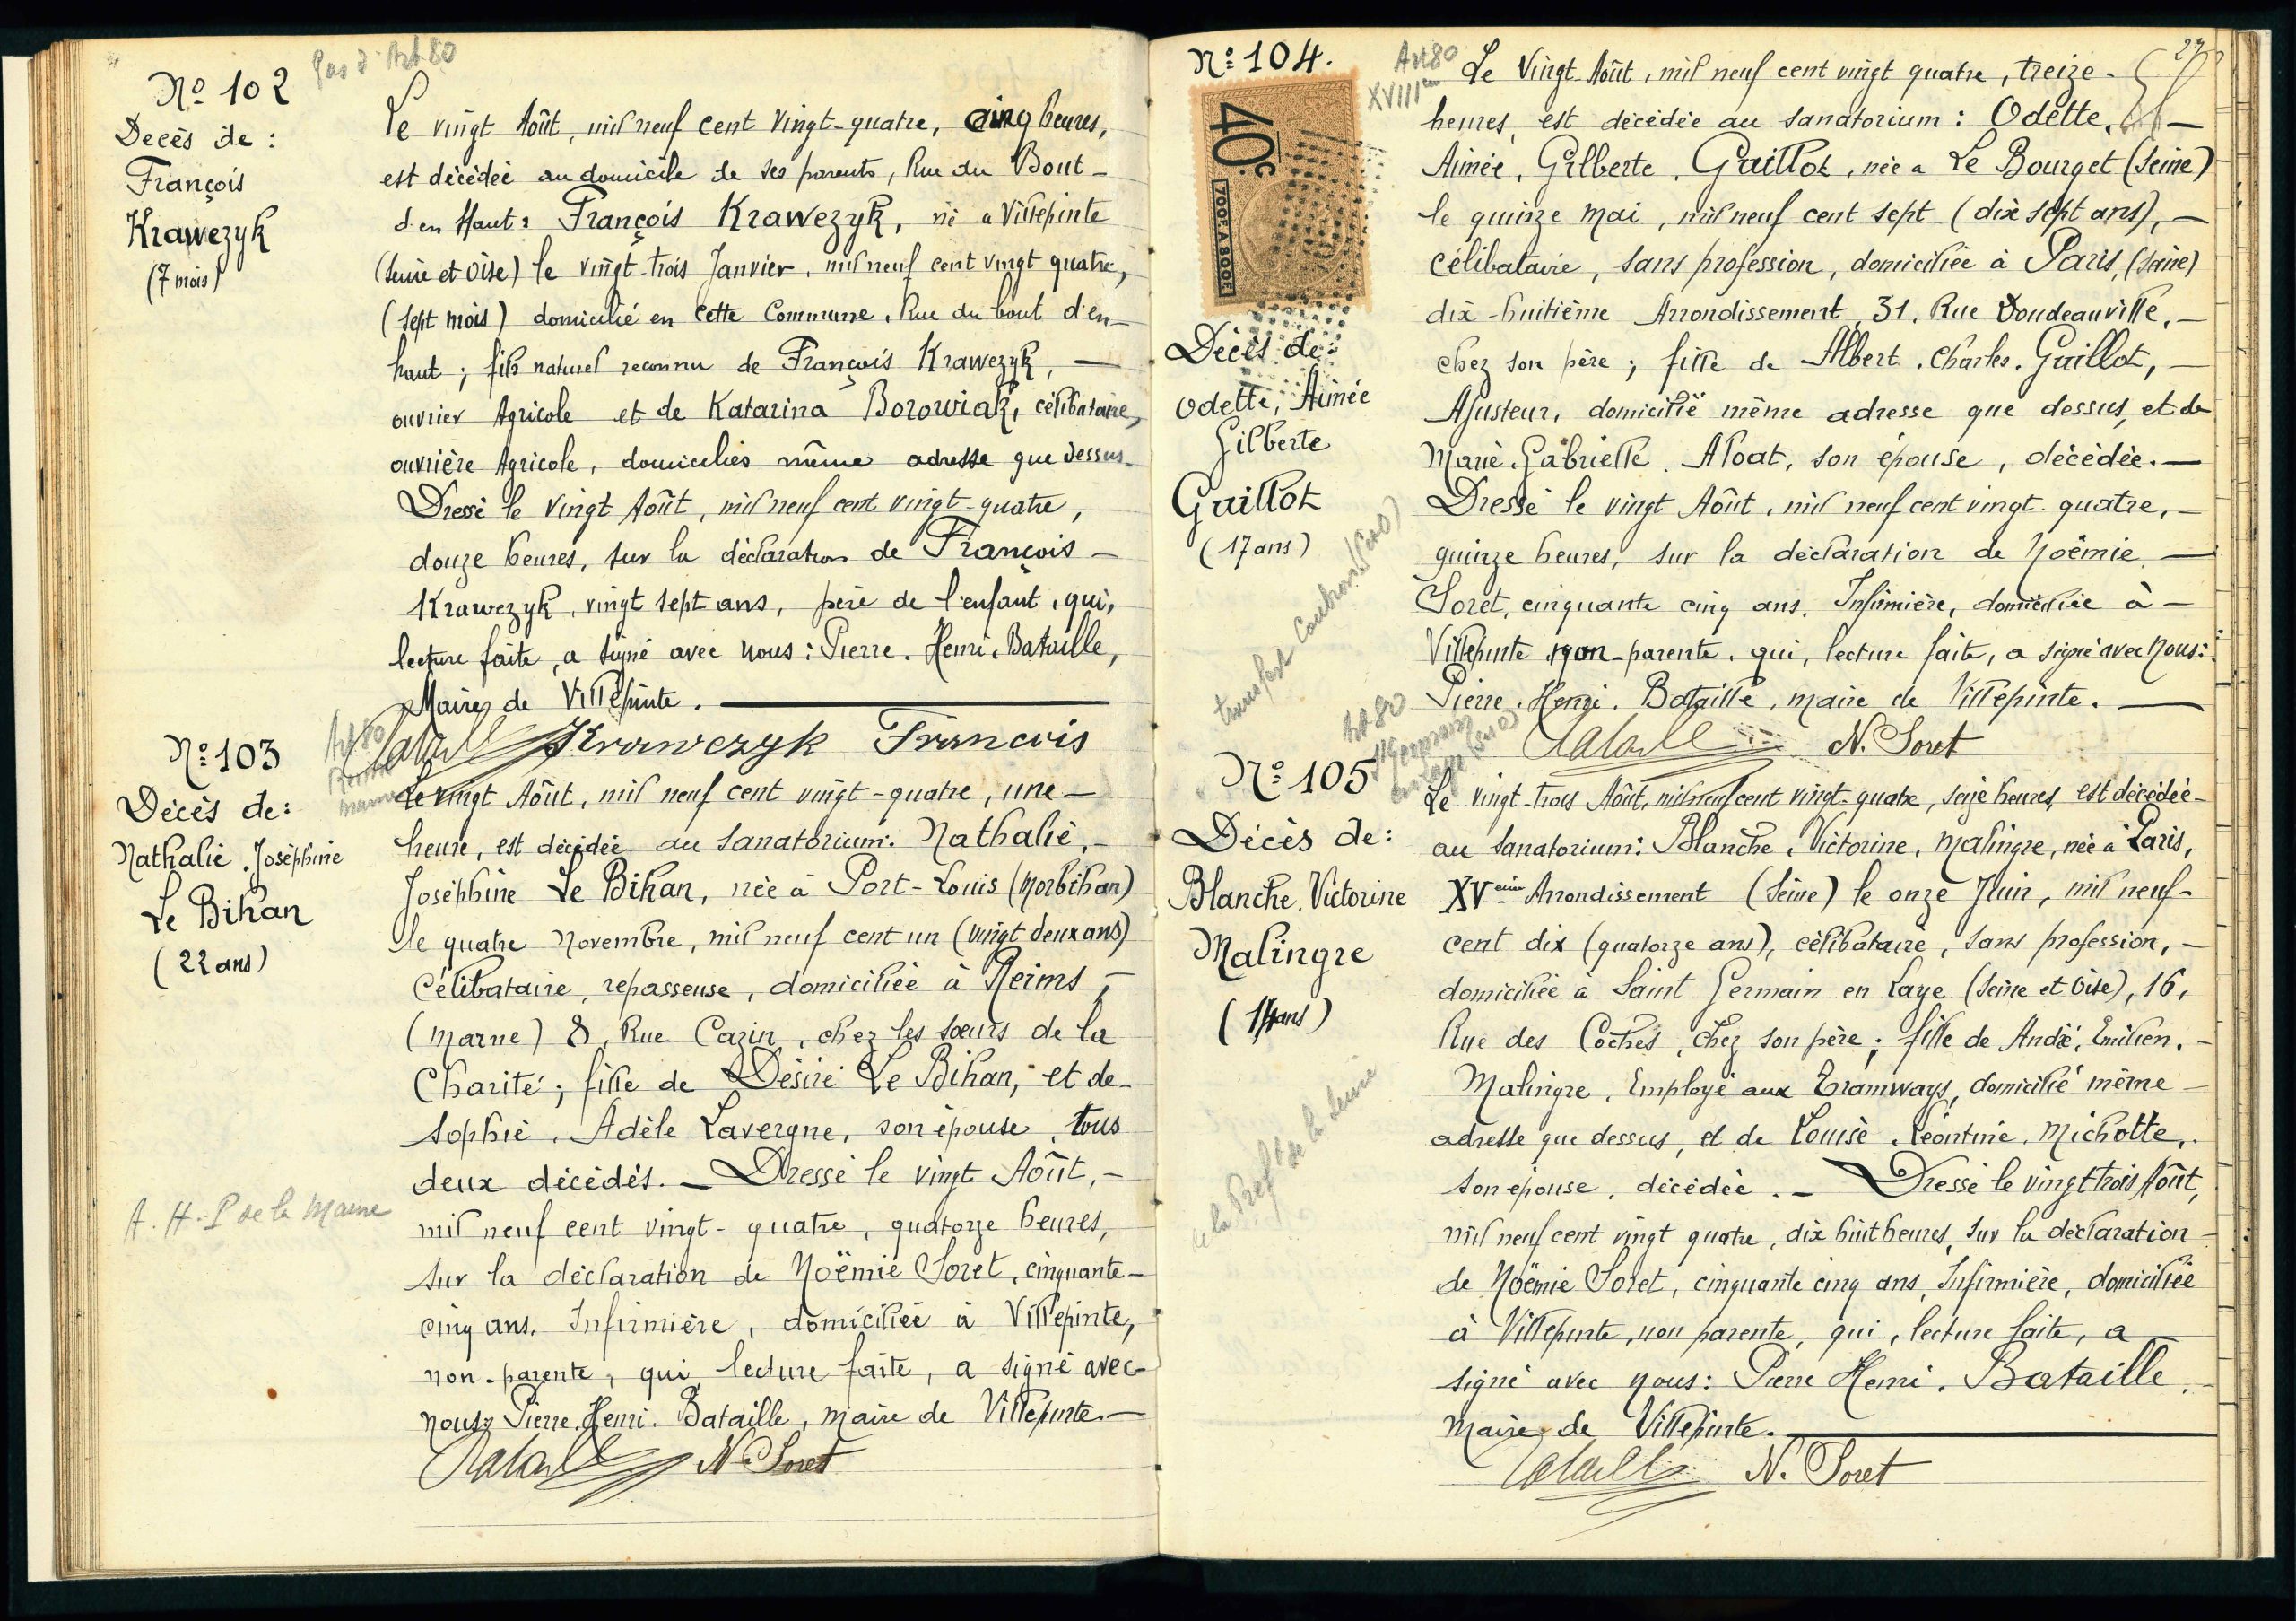 Pas d'Art 80
Nº 102
Decès de :
François
Krawezyk
(7 mois)
Le vingt Août, mil neuf cent vingt-quatre, cinq heures,
est décédée au domicile de ses parents, Rue du Bout-
d'en Haut : François Krawezyk, né à Villepinte
(Seine et Oise) le vingt-trois Janvier, mil neuf cent vingt quatre,
(sept mois) domicilié en cette Commune, Rue du bout d'en-
haut ; fils naturel reconnu de François Krawezyk, —
ouvrier Agricole et de Katarina Borowiak, célibataire,
ouvrière Agricole, domiciliés même adresse que dessus.
Dressé le vingt Août, mil neuf cent vingt-quatre,
douze heures, sur la déclaration de François —
Krawezyk, vingt sept ans, père de l'enfant, qui,
lecture faite, a signé avec nous : Pierre. Henri. Bataille,
Maire de Villepinte. —
Bataille Krawczyk Francois
Nº 103
Art 80
Reims
Marne
Décès de :
Nathalie. Joséphine
Le Bihan
(22 ans)
A. H. P de la Marne
Le vingt Août, mil neuf cent vingt-quatre, une —
heure, est décédée au sanatorium : Nathalie, —
Joséphine Le Bihan, née à Port-Louis (Morbihan)
le quatre Novembre, mil neuf cent un (vingt deux ans)
Célibataire, repasseuse, domiciliée à Reims, —
(Marne) 8, Rue Cazin, chez les sœurs de la
Charité ; fille de Désiré Le Bihan, et de —
Sophie. Adèle Lavergne, son épouse, tous
deux décédés. — Dressé le vingt Août, —
mil neuf cent vingt-quatre, quatorze heures,
sur la déclaration de Noëmie Soret, cinquante-
cinq ans, Infirmière, domiciliée à Villepinte,
non-parente, qui lecture faite, a signé avec-
nous : Pierre. Henri. Bataille, maire de Villepinte. —
Bataille N. Soret
27
Nº 104.
Art 80
XVIIIem
40c.
700F. A 800F.
Décès de :
Odette, Aimée
Gilberte
Guillot
(17 ans)
transfert (S&O)
Le Vingt Août, mil neuf cent vingt quatre, treize-
heures, est décédée au sanatorium : Odette. —
Aimée, Gilberte, Guillot, née à Le Bourget (Seine)
le quinze mai, mil neuf cent sept (dix sept ans), —
célibataire, sans profession, domiciliée à Paris, (Seine)
dix-huitième Arrondissement, 31, Rue Doudeauville, —
chez son père ; fille de Albert. Charles. Guillot, —
Ajusteur, domicilié même adresse que dessus, et de
Marie. Gabrielle. Aloat, son épouse, décédée. —
Dressé le vingt Août, mil neuf cent vingt-quatre, —
quinze heures, sur la déclaration de Noëmie —
Soret, cinquante cinq ans, Infirmière, domiciliée à —
Villepinte non-parente, qui, lecture faite, a signé avec Nous :
Pierre. Henri. Bataille, maire de Villepinte. —
Bataille N. Soret
Nº 105
Art 80
St Germain
en Laye (S&O)
Décès de :
Blanche. Victorine
Malingre
(14 ans)
de la Preft de la Seine
Le vingt-trois Août, mil neuf cent vingt-quatre, seize heures, est décédée-
au sanatorium : Blanche, Victorine, Malingre, née à Paris,
XVeme Arrondissement (Seine) le onze Juin, mil neuf-
cent dix (quatorze ans), célibataire, sans profession, —
domiciliée à Saint Germain en Laye (Seine et Oise), 16,
Rue des Coches, chez son père ; fille de André, Emilien. —
Malingre, Employé aux Tramways, domicilié même —
adresse que dessus, et de Louise. Léontine. Michotte,.
son épouse, décédée. — Dressé le vingt trois Août,
mil neuf cent vingt quatre, dix huit heures, sur la déclaration —
de Noëmie Soret, cinquante cinq ans, Infirmière, domiciliée
à Villepinte, non parente, qui, lecture faite, a
signé avec nous : Pierre Henri. Bataille, —
maire de Villepinte. —
Bataille N. Soret